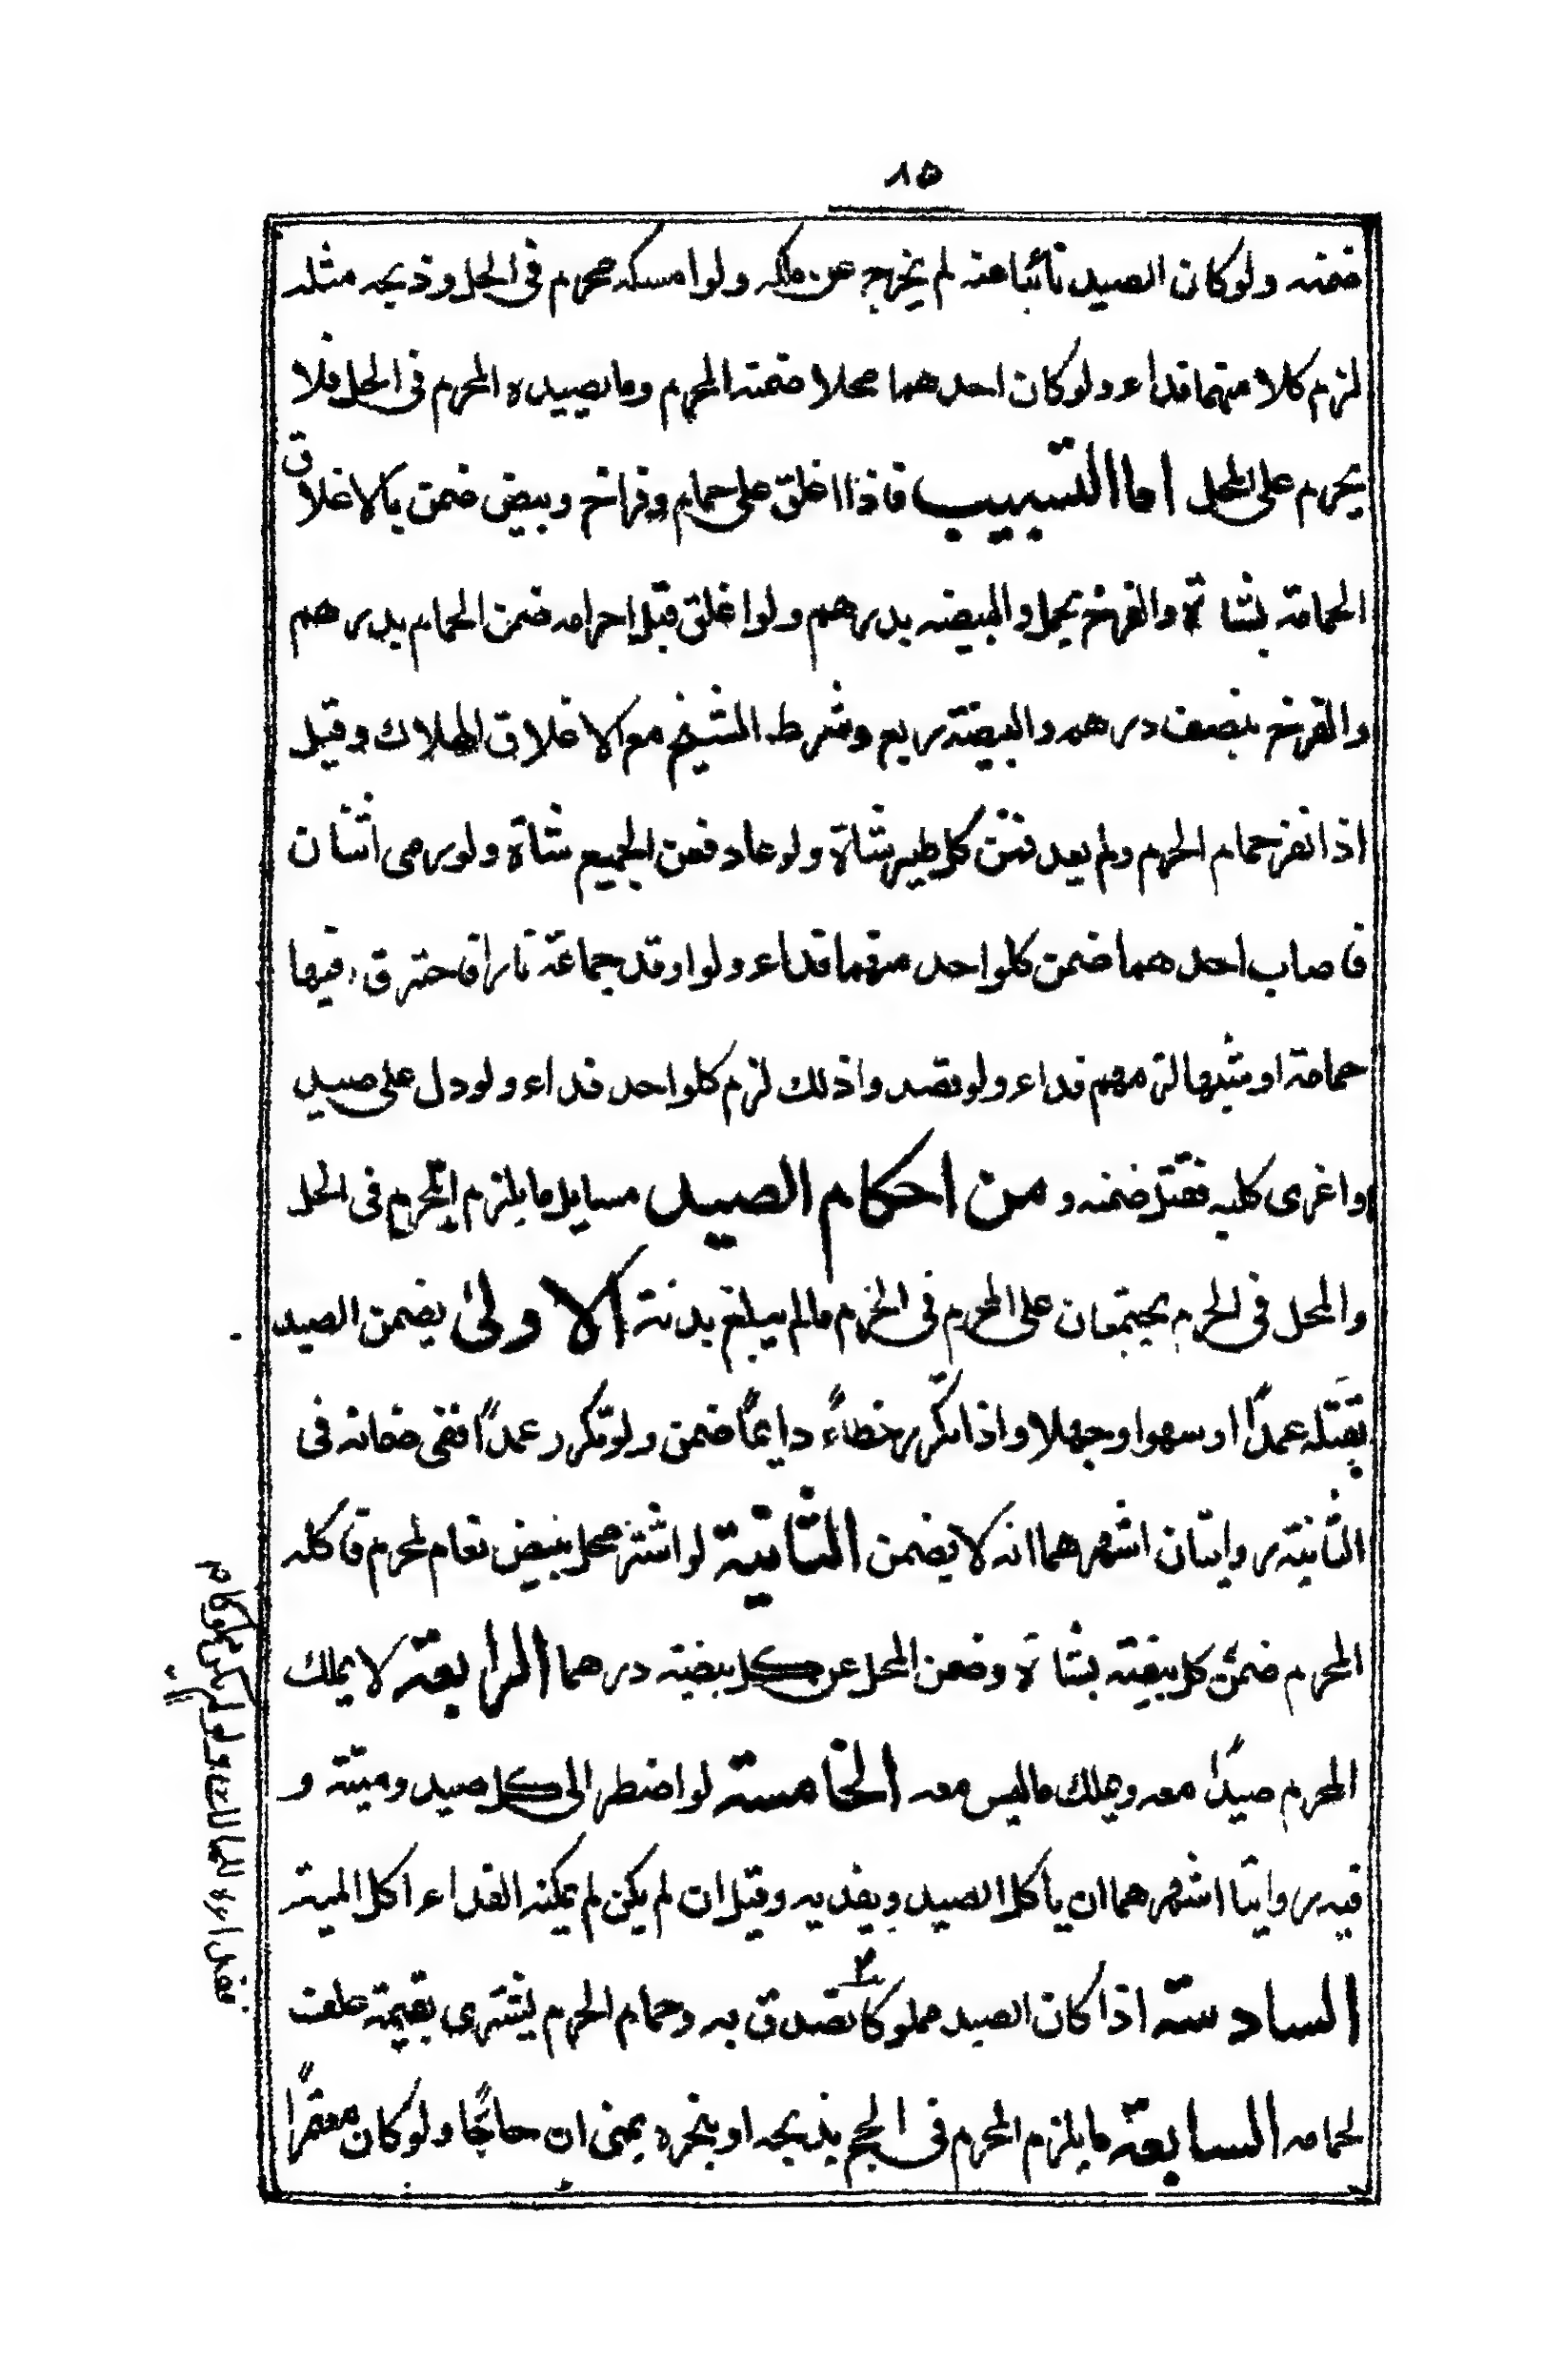 ٨٥
ضمنه ولو كان الصيد نائبا عنه لم يخرج عن ملكه ولو امسكه محرم في الحل وذبحه مثله
لزم كلا منهما فداء ولو كان احدهما محلا ضمنه المحرم وما يصيده المحرم في الحل فلا
يحرم على المحل اما التسبيب فاذا اغلق على حمام وفراخ وبيض ضمن بالاغلاق
الحمامة بشاة والفرخ بحمل والبيضه بدرهم ولو اغلق قبل احرامه ضمن الحمام بدرهم
والفرخ بنصف درهم والبيضة بربع وشرط الشيخ مع الاغلاق الهلاك وقيل
اذا نفر حمام الحرم ولم يعد فعن كل طير شاة ولو عاد فعن الجميع شاة ولو رمى اثنان
فاصاب احدهما ضمن كلواحد منهما فداء ولو اوقد جماعة نارا فاحترق فيها
حمامة او شبهها لزمهم فداء ولو قصد واذلك لزم كلواحد فداء ولو دل على صيد
او اغرى كلبه فقتل ضمنه ومن احكام الصيد مسايل ما يلزم المحرم في الحل
والمحل في الحرم يجتمعان على المحرم في الحرم ما لم يبلغ بدنة الاولى يضمن الصيد
بقتله عمدًا او سهوا وجهلا واذا تكرر خطاءً دايمًا ضمن ولو تكرر عمدًا ففى ضمانه في
الثانية روايتان اشهرهما انه لا يضمن الثانية لو اشتر محل بيض نعام لمحرم فاكله
المحرم ضمن كل بيضة بشاة وضمن المحل عن كل بيضة درهما الرابعة لا يملك
المحرم صيدًا معه ويملك ما ليس معه الخامسة لو اضطر الى كل صيد وميتة و
فيه روايتا اشهرهما ان ياكل الصيد ويفديه وقيل ان لم يكن لم يمكنه الفداء اكل الميتة
السادسة اذا كان الصيد مملوكا تصدق به وحمام الحرم يشترى بقيمة علف
لحمامه السابعة ما يلزم المحرم في الحج يذبحه او ينحره بمنى ان حاجًا ولو كان معتمرًا